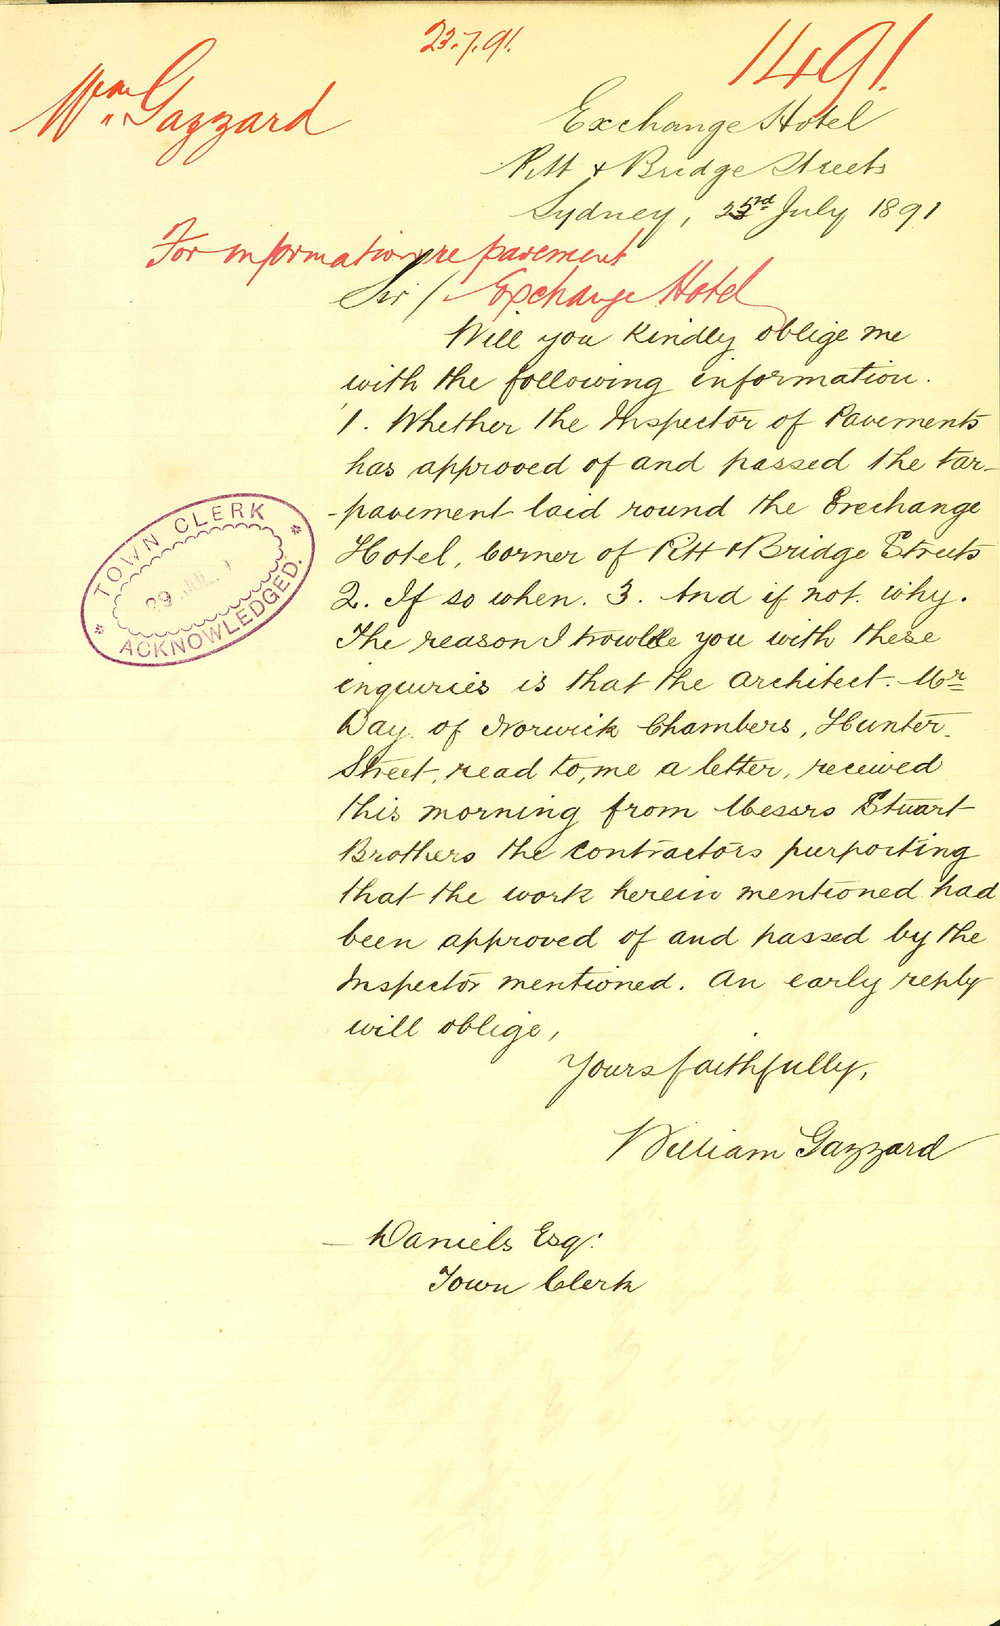 23.7.91.
1491.
Wm Gazzard
Exchange Hotel
Pitt & Bridge Streets
Sydney, 23rd July 1891
For information re pavement
Exchange Hotel
Sir/
Will you kindly oblige me
with the following information.
1. Whether the Inspector of Pavements
has approved of and passed the tar-
-pavement laid round the Exchange
Hotel, Corner of Pitt & Bridge Streets
2. If so when. 3. And if not why.
The reason I trouble you with these
enquiries is that the architect Mr
Day of Norwick Chambers, Hunter
Street, read to me a letter, received
this morning from Messrs Stuart
Brothers the contractors purporting
that the work herein mentioned had
been approved of and passed by the
Inspector mentioned. An early reply
will oblige,
Yours faithfully,
William Gazzard
— Daniels Esq:
Town Clerk
TOWN CLERK
29 JUL
ACKNOWLEDGED.